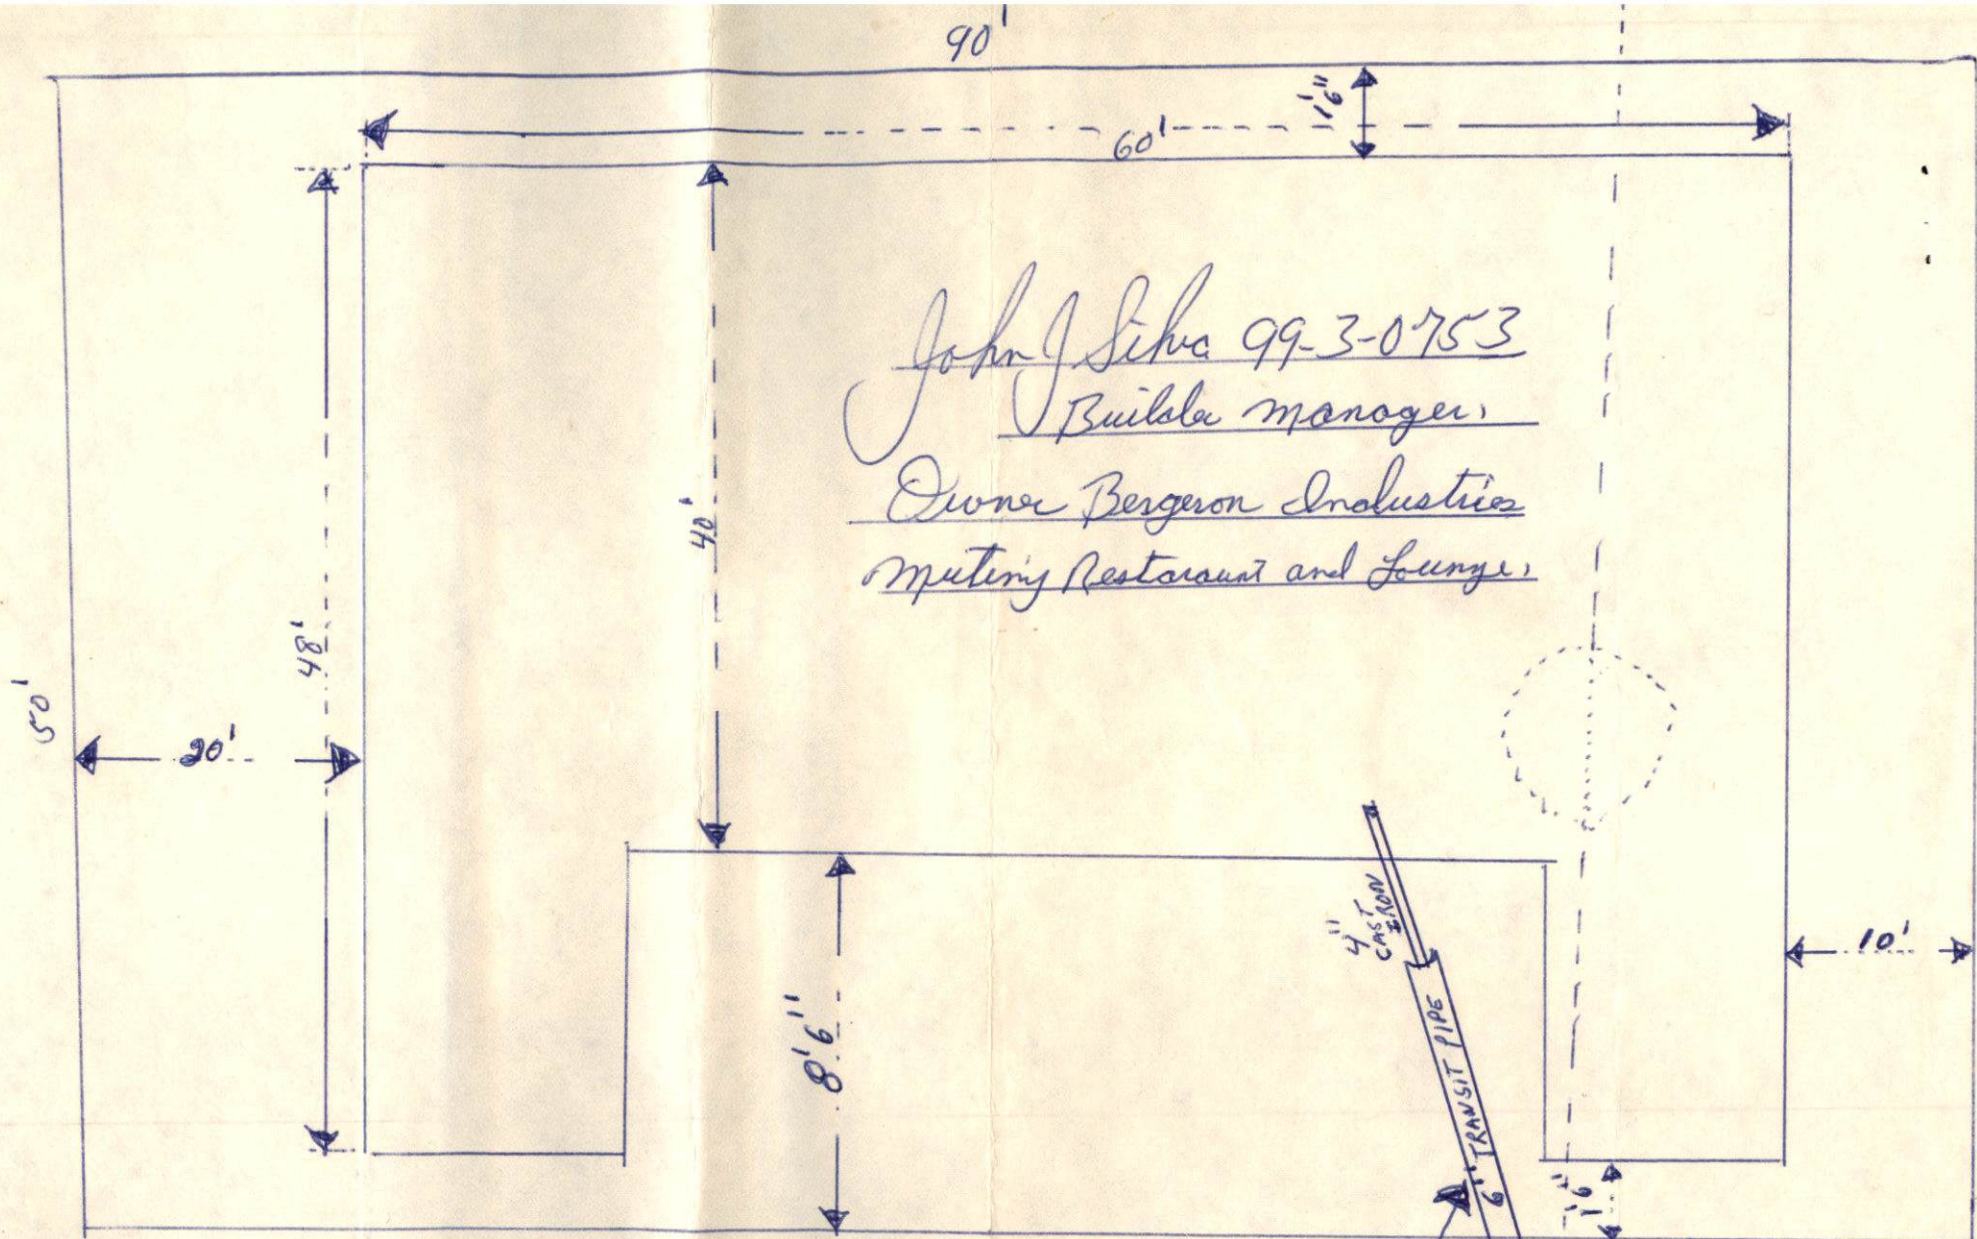 90'
1'6"
60'
John J Silva 99-3-0753
Builder Manager.
Owner Bergeron Industries
Mutiny Restaraunt and Lounge.
40'
48'
50'
20'
4"
CAST
IRON
10'
8'6"
6" TRANSIT PIPE
1'6"